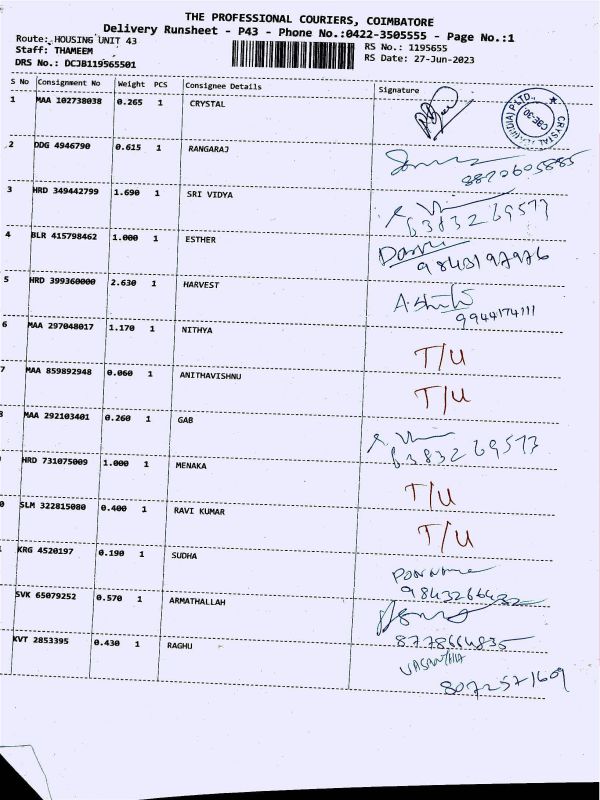 THE PROFESSIONAL COURIERS, COIMBATORE
Delivery Runsheet - P43 - Phone No.:0422-3505555 - Page No.:1
Route: HOUSING UNIT 43
RS No.: 1195655
Staff: THAMEEM
RS Date: 27-Jun-2023
DRS No.: DCJB119565501
S No Consignment No Weight PCS Consignee Details Signature
1 MAA 102738038 0.265 1 CRYSTAL
CRYSTAL (INDIA) P LTD., CBE-30
2 DDG 4946790 0.615 1 RANGARAJ
8870605885
3 HRD 349442799 1.690 1 SRI VIDYA
6383269577
4 BLR 415798462 1.000 1 ESTHER
9843197976
5 HRD 399360000 2.630 1 HARVEST
9944174111
6 MAA 297048017 1.170 1 NITHYA T/U
7 MAA 859892948 0.060 1 ANITHAVISHNU T/U
8 MAA 292103401 0.260 1 GAB
6383269577
HRD 731075009 1.000 1 MENAKA T/U
0 SLM 322815080 0.400 1 RAVI KUMAR T/U
KRG 4520197 0.190 1 SUDHA
9843266432
SVK 65079252 0.570 1 ARMATHALLAH
8778664835
KVT 2853395 0.430 1 RAGHU VASANTHA
8072571609